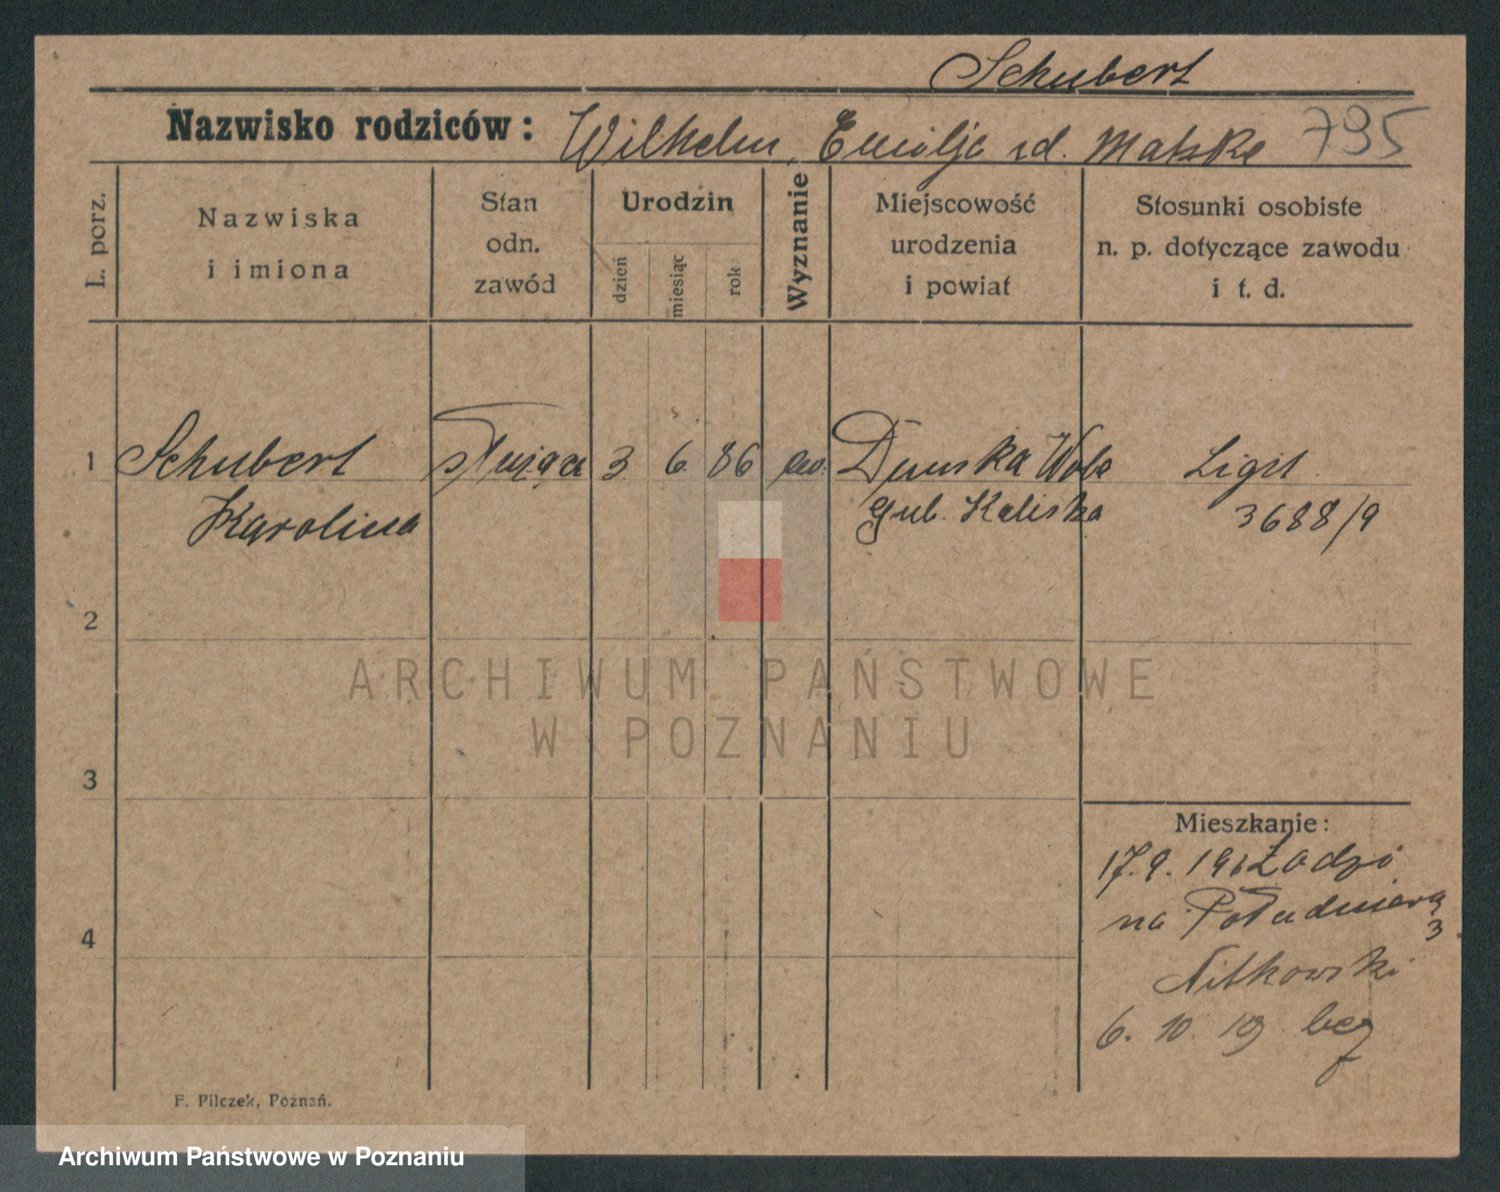 Schubert
Nazwisko rodziców: Wilhelm, Emilja rd. Matzke 795
L. porz.
Nazwiska i imiona
Stan odn. zawód
Urodzin
dzień
miesiąc
rok
Wyznanie
Miejscowość urodzenia i powiat
Stosunki osobiste n. p. dotyczące zawodu i t. d.
1 Schubert służąca 3 6 86 ew. Dunska Wola Ligit
Karolina gub. Kaliska 3688/9
2
3
4
Mieszkanie:
17.9.19 z Łodzi
na Południową 3
Nitkowski
6. 10. 19 bez
F. Pilczek, Poznań.
ARCHIWUM PAŃSTWOWE
W POZNANIU
Archiwum Państwowe w Poznaniu